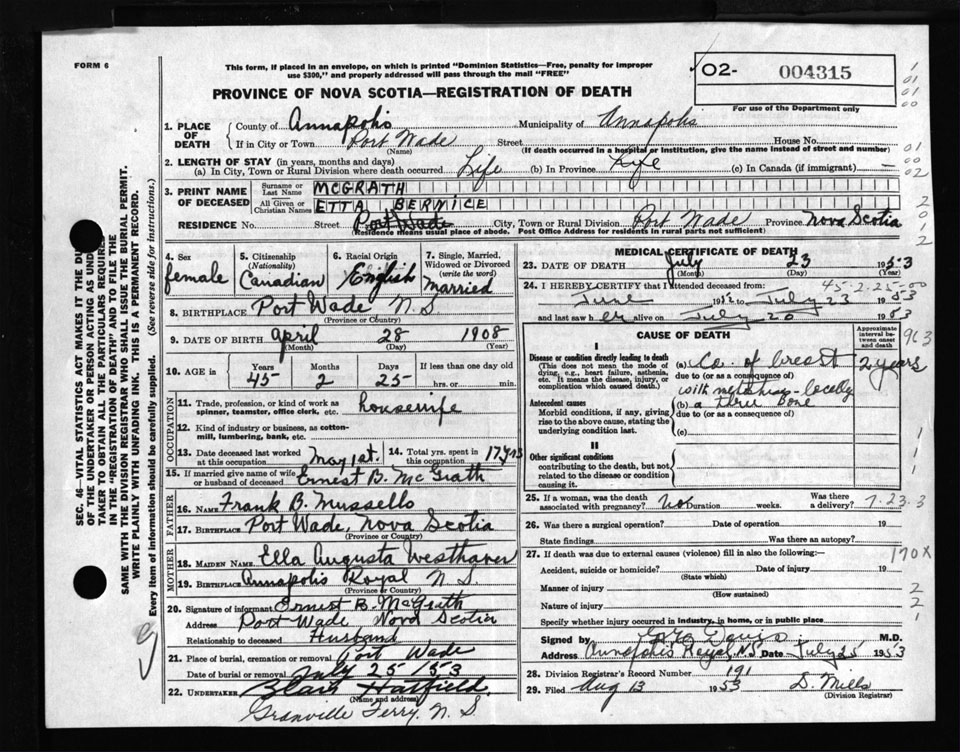 FORM 6
This form, if placed in an envelope, on which is printed "Dominion Statistics—Free, penalty for improper
use $300," and properly addressed will pass through the mail "FREE"
PROVINCE OF NOVA SCOTIA—REGISTRATION OF DEATH
O2- 004315
For use of the Department only
1. PLACE OF DEATH County of Annapolis Municipality of Annapolis
If in City or Town Port Wade Street House No.
(Name) (If death occurred in a hospital or institution, give the name instead of street and number)
2. LENGTH OF STAY (in years, months and days)
(a) In City, Town or Rural Division where death occurred Life (b) In Province Life (c) In Canada (if immigrant) —
3. PRINT NAME OF DECEASED Surname or Last Name MCGRATH
All Given or Christian Names ETTA BERNICE
RESIDENCE No. Street Port Wade City, Town or Rural Division Port Wade Province Nova Scotia
(Residence means usual place of abode. Post Office Address for residents in rural parts not sufficient)
4. Sex female
5. Citizenship (Nationality) Canadian
6. Racial Origin English
7. Single, Married, Widowed or Divorced (write the word) Married
8. BIRTHPLACE Port Wade N.S.
(Province or Country)
9. DATE OF BIRTH April 28 1908
(Month) (Day) (Year)
10. AGE in Years 45 Months 2 Days 25 If less than one day old hrs. or min.
OCCUPATION
11. Trade, profession, or kind of work as spinner, teamster, office clerk, etc. housewife
12. Kind of industry or business, as cotton-mill, lumbering, bank, etc.
13. Date deceased last worked at this occupation May 1st. 14. Total yrs. spent in this occupation 17 yrs
15. If married give name of wife or husband of deceased Ernest B. McGrath
FATHER
16. Name Frank B. Mussells
17. Birthplace Port Wade, Nova Scotia
(Province or Country)
MOTHER
18. MAIDEN NAME Ella Augusta Westhaver
19. BIRTHPLACE Annapolis Royal N.S.
(Province or Country)
20. Signature of informant Ernest B. McGrath
Address Port Wade Nova Scotia
Relationship to deceased Husband
21. Place of burial, cremation or removal Port Wade
Date of burial or removal July 25 /53
22. UNDERTAKER Blair Hatfield.
(Name and address)
Granville Ferry, N.S.
MEDICAL CERTIFICATE OF DEATH
23. DATE OF DEATH July 23 1953
(Month) (Day) (Year)
24. I HEREBY CERTIFY that I attended deceased from: 45-2-25-00
June 1952 to July 23 1953
and last saw her alive on July 20 1953
CAUSE OF DEATH
Approximate interval between onset and death
I
Disease or condition directly leading to death
(This does not mean the mode of dying, e.g., heart failure, asthenia, etc. It means the disease, injury, or complication which caused death.)
(a) Ca. of breast 2 years
due to (or as a consequence of)
with metastases locally
Antecedent causes
Morbid conditions, if any, giving rise to the above cause, stating the underlying condition last.
(b) bone
due to (or as a consequence of)
(c)
II
Other significant conditions
contributing to the death, but not related to the disease or condition causing it.
25. If a woman, was the death associated with pregnancy? No Duration weeks. Was there a delivery? 7.23.3
26. Was there a surgical operation? Date of operation 19
State findings Was there an autopsy?
27. If death was due to external causes (violence) fill in also the following:— 170X
Accident, suicide or homicide? Date of injury 19
(State which)
Manner of injury
(How sustained)
Nature of injury
Specify whether injury occurred in industry, in home, or in public place
Signed by Davis M.D.
Address Annapolis Royal NS Date July 25 1953
28. Division Registrar's Record Number 191
29. Filed Aug 13 1953 D. Mills
(Division Registrar)
SEC. 46—VITAL STATISTICS ACT MAKES IT THE
OF THE UNDERTAKER OR PERSON ACTING AS
TAKER TO OBTAIN ALL THE PARTICULARS REQUIRED
IN THE "REGISTRATION OF DEATH" AND TO FILE THE
SAME WITH THE DIVISION REGISTRAR WHO SHALL ISSUE THE BURIAL PERMIT.
WRITE PLAINLY WITH UNFADING INK. THIS IS A PERMANENT RECORD.
Every item of information should be carefully supplied. (See reverse side for instructions.)